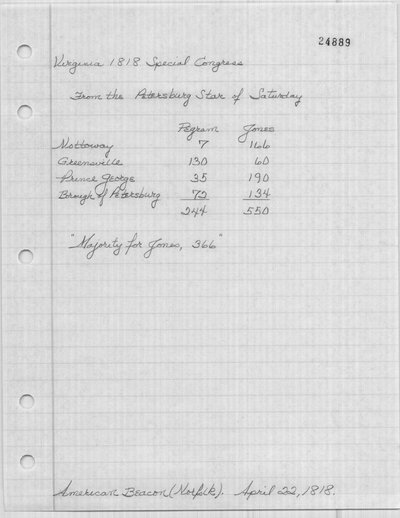 24889
Virginia 1818 Special Congress
From the Petersburg Star of Saturday
Pegram Jones
Nottoway 7 166
Greensville 130 60
Prince George 35 190
Borough of Petersburg 72 134
244 550
"Majority for Jones, 366"
American Beacon (Norfolk). April 22, 1818.